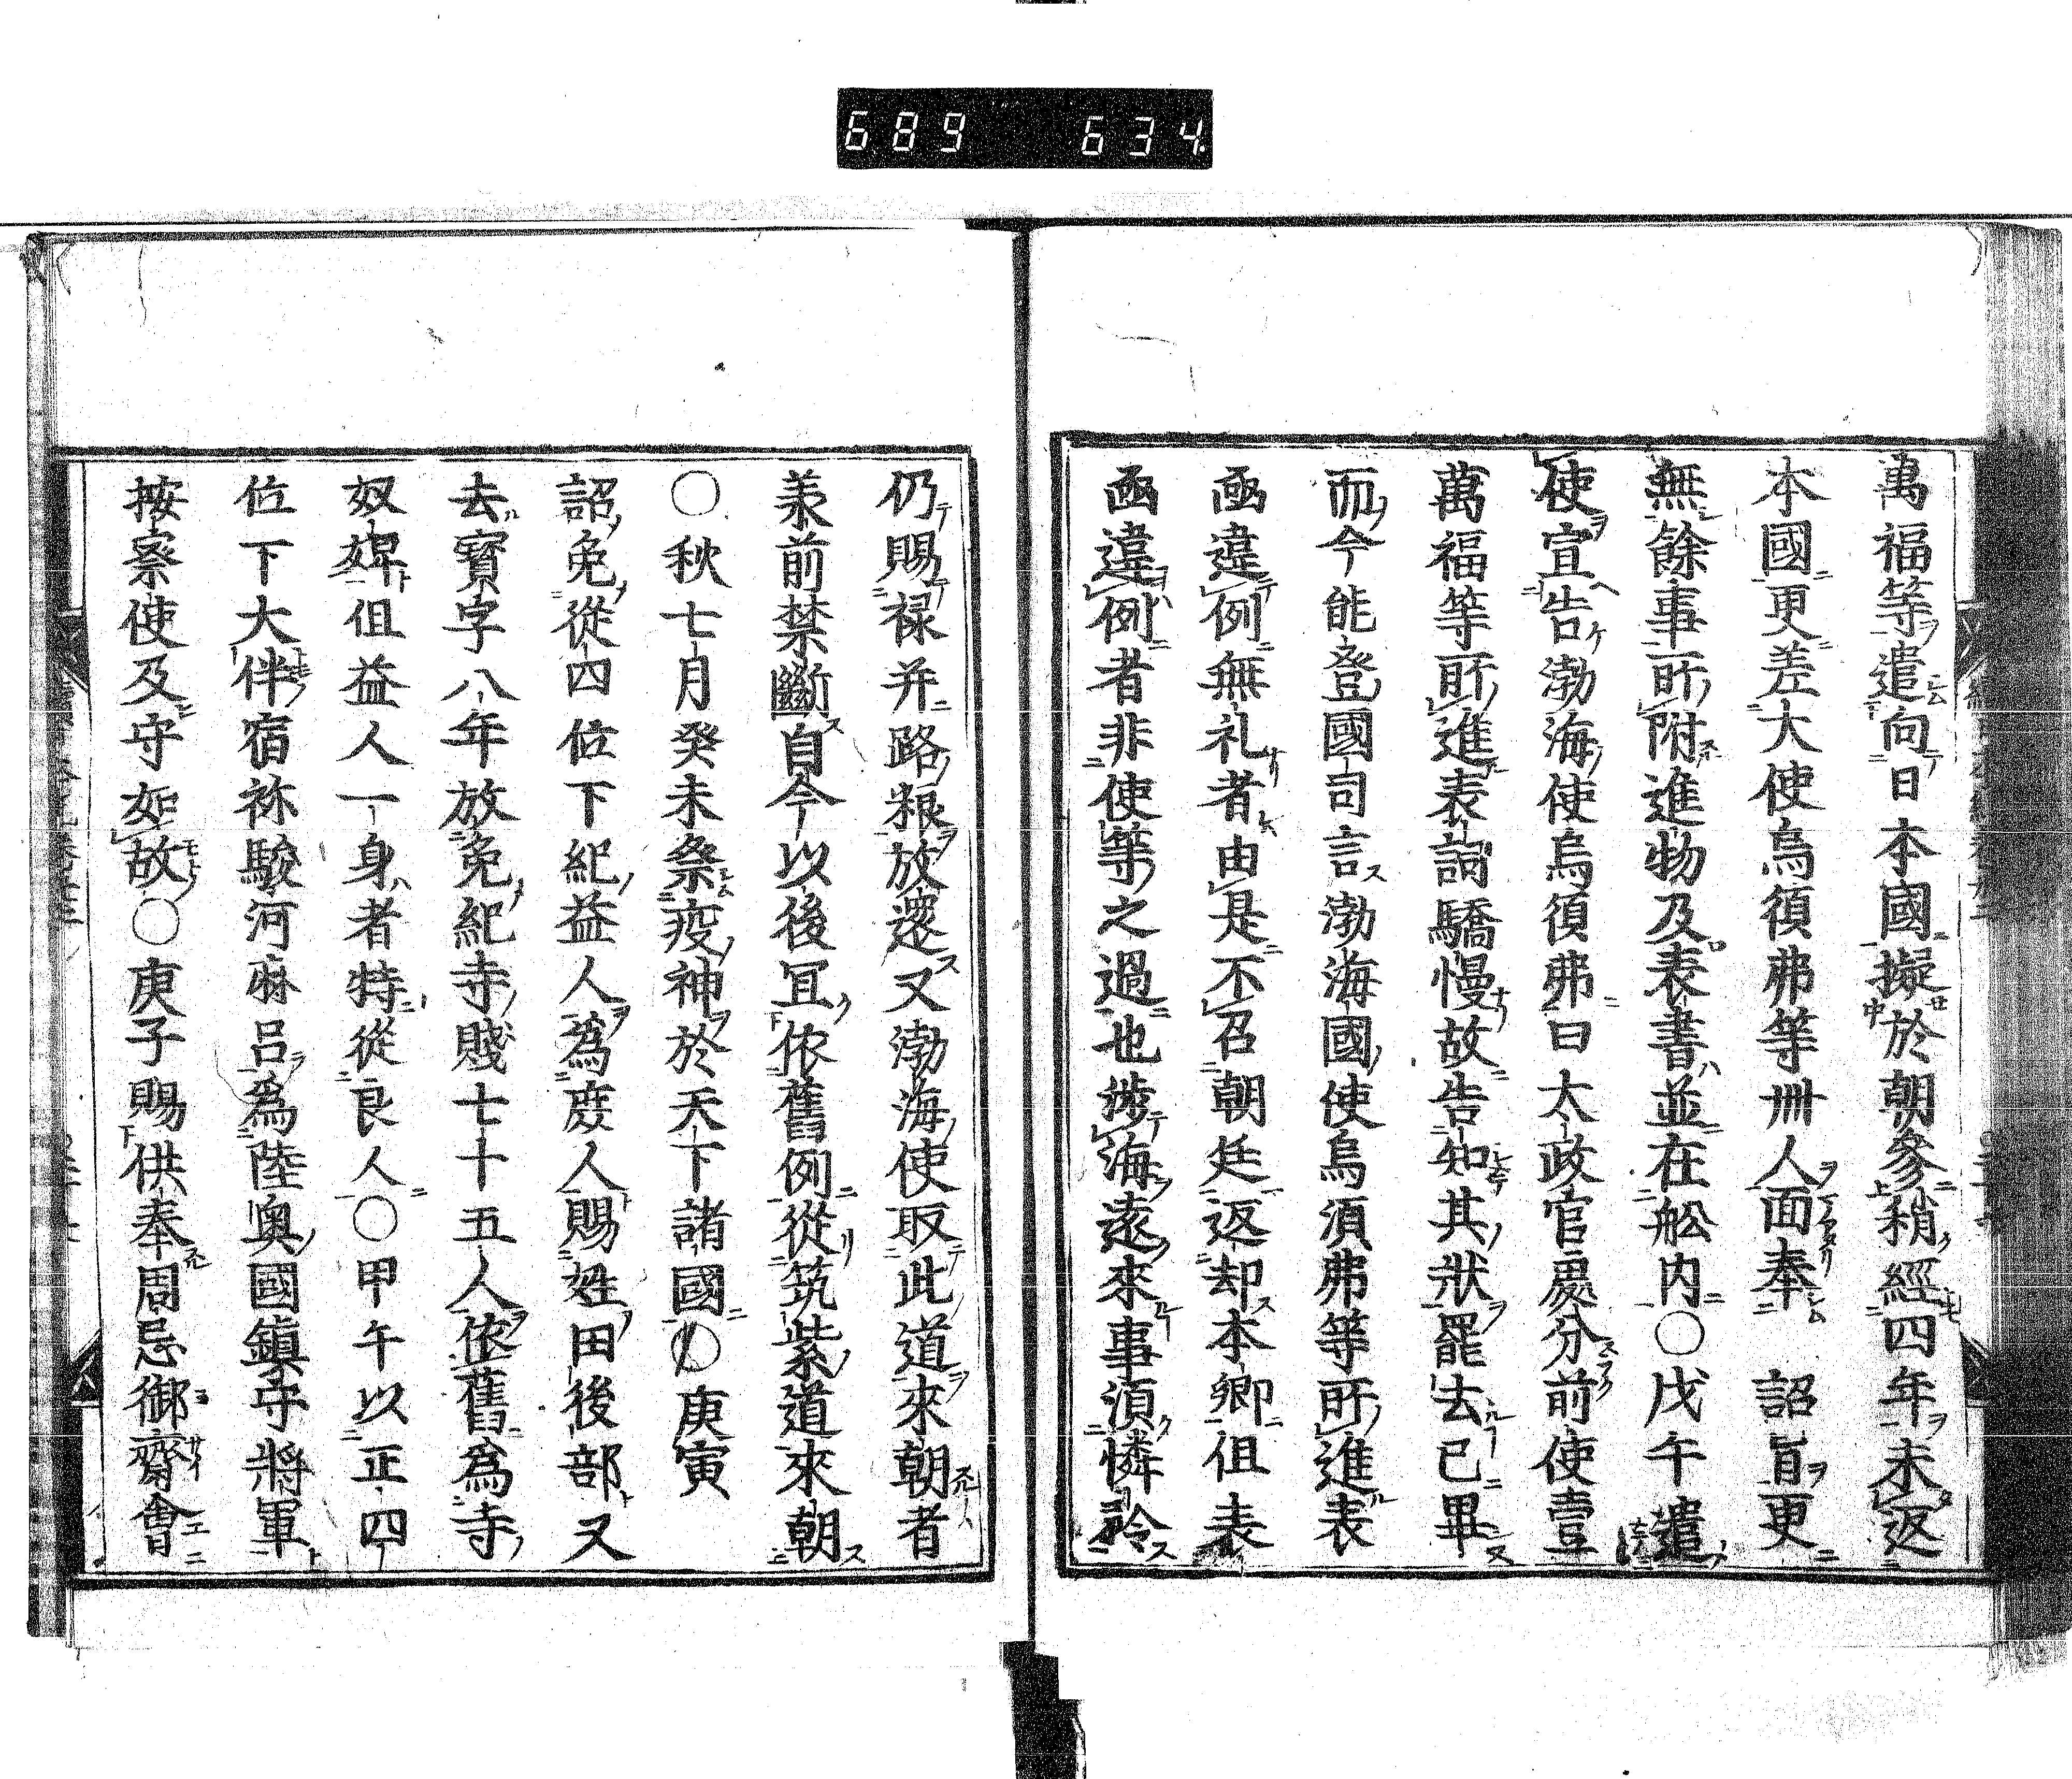 689 634
萬福等遣向日本國擬於朝參稍經四年未返
本國更差大使烏須弗等卌人面奉 詔旨更
無餘事所附進物及表書並在舩内○戊午遣
使宣告渤海使烏須弗曰太政官處分前使壹
萬福等所進表詞驕慢故告知其狀罷去已畢
而今能登國司言渤海國使烏須弗等所進表
函違例無礼者由是不召朝廷返却本郷但表
函違例者非使等之過也渉海遠來事須憐矜
仍賜禄并路粮放還又渤海使取此道來朝者
羕前禁斷自今以後冝依舊例從筑紫道來朝
○秋七月癸未祭疫神於天下諸國○庚寅
詔免從四位下紀益人為庶人賜姓田後部又
去寳字八年放免紀寺賤七十五人依舊為寺
奴婢但益人一身者特從良人○甲午以正四
位下大伴宿祢駿河麻呂爲陸奥國鎮守將軍
按察使及守如故○庚子賜供奉周忌御齋會